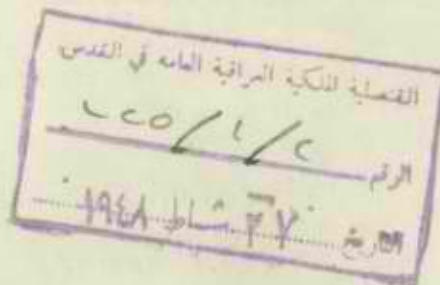 القنصلية الملكية العراقية العامه في القدس
الرقم ٢٢٥/١/٢
التاريخ ٢٧ شباط ١٩٤٨